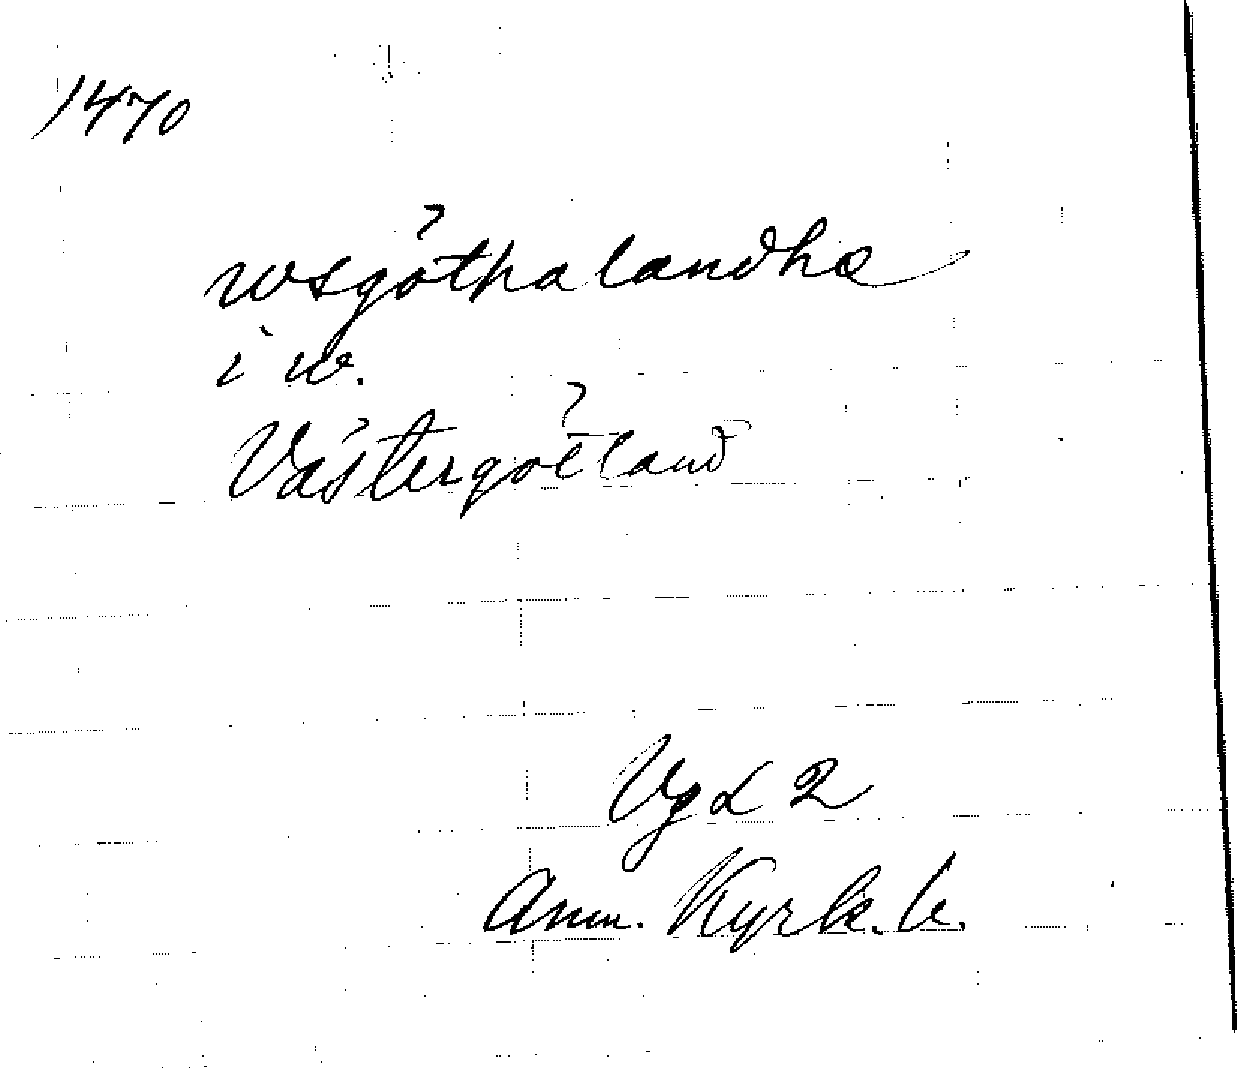 1470
wsgötha landha
i w.
Västergötland
Vg L 2
Anm. Kyrk. b.